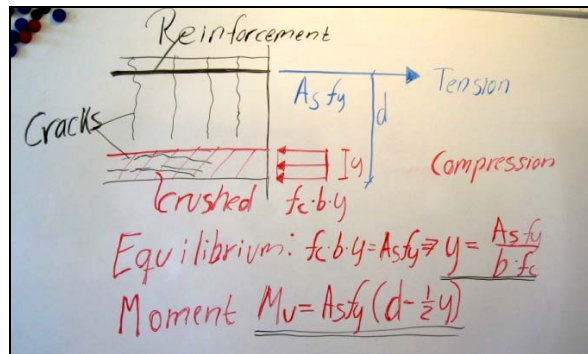 Reinforcement
As fy
Tension
d
Cracks
y
Compression
Crushed
fc·b·y
Equilibrium: fc·b·y = As fy ⇒ y = As fy / b·fc
Moment Mu = As fy (d - 1/2 y)